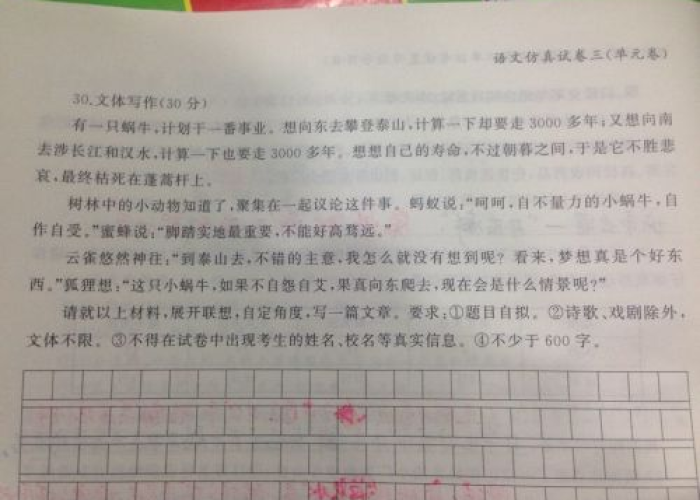 语文仿真试卷三(单元卷)
30.文体写作(30分)
有一只蜗牛,计划干一番事业。想向东去攀登泰山,计算一下却要走3000多年;又想向南
去涉长江和汉水,计算一下也要走3000多年。想想自己的寿命,不过朝暮之间,于是它不胜悲
哀,最终枯死在蓬蒿杆上。
树林中的小动物知道了,聚集在一起议论这件事。蚂蚁说:“呵呵,自不量力的小蜗牛,自
作自受。”蜜蜂说:“脚踏实地最重要,不能好高骛远。”
云雀悠然神往:“到泰山去,不错的主意,我怎么就没有想到呢?看来,梦想真是个好东
西。”狐狸想:“这只小蜗牛,如果不自怨自艾,果真向东爬去,现在会是什么情景呢?”
请就以上材料,展开联想,自定角度,写一篇文章。要求:①题目自拟。②诗歌、戏剧除外,
文体不限。③不得在试卷中出现考生的姓名、校名等真实信息。④不少于600字。